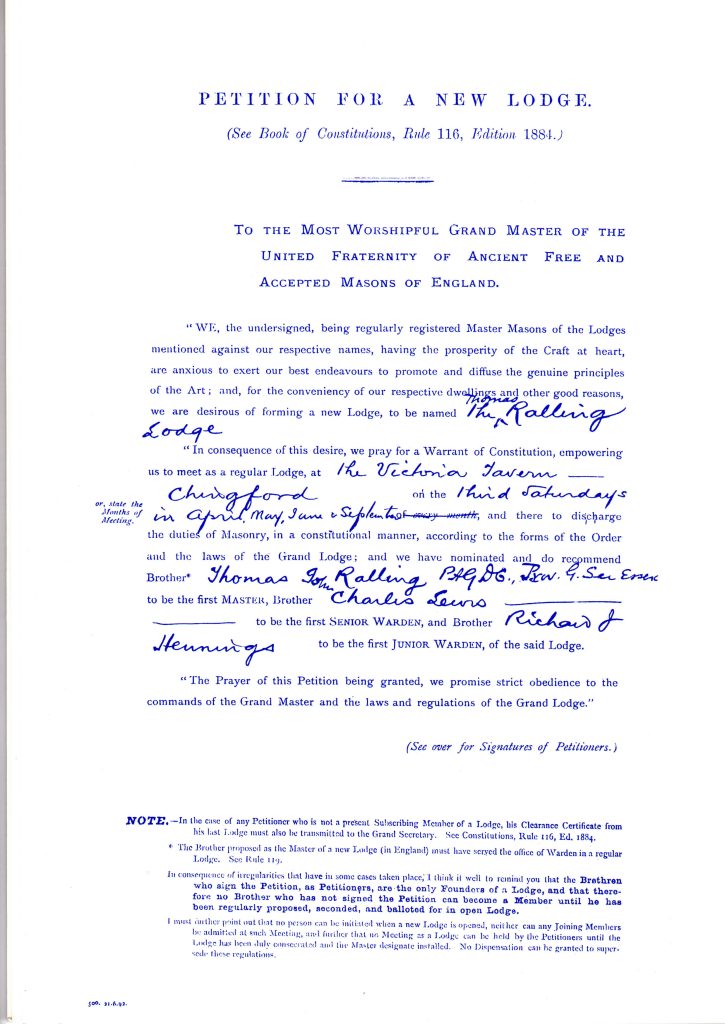 PETITION FOR A NEW LODGE.
(See Book of Constitutions, Rule 116, Edition 1884.)
TO THE MOST WORSHIPFUL GRAND MASTER OF THE
UNITED FRATERNITY OF ANCIENT FREE AND
ACCEPTED MASONS OF ENGLAND.
"WE, the undersigned, being regularly registered Master Masons of the Lodges
mentioned against our respective names, having the prosperity of the Craft at heart,
are anxious to exert our best endeavours to promote and diffuse the genuine principles
of the Art; and, for the conveniency of our respective dwellings and other good reasons,
we are desirous of forming a new Lodge, to be named The Thomas Ralling
Lodge
"In consequence of this desire, we pray for a Warrant of Constitution, empowering
us to meet as a regular Lodge, at The Victoria Tavern
Chingford on the third Saturdays
or, state the
Months of
Meeting.
in April, May, June & September of every month, and there to discharge
the duties of Masonry, in a constitutional manner, according to the forms of the Order
and the laws of the Grand Lodge; and we have nominated and do recommend
Brother* Thomas John Ralling PAGDC., Prov. G. Sec Essex
to be the first MASTER, Brother Charles Lewis
to be the first SENIOR WARDEN, and Brother Richard J
Hennings to be the first JUNIOR WARDEN, of the said Lodge.
"The Prayer of this Petition being granted, we promise strict obedience to the
commands of the Grand Master and the laws and regulations of the Grand Lodge."
(See over for Signatures of Petitioners.)
NOTE.—In the case of any Petitioner who is not a present Subscribing Member of a Lodge, his Clearance Certificate from
his last Lodge must also be transmitted to the Grand Secretary. See Constitutions, Rule 116, Ed. 1884.
* The Brother proposed as the Master of a new Lodge (in England) must have served the office of Warden in a regular
Lodge. See Rule 119.
In consequence of irregularities that have in some cases taken place, I think it well to remind you that the Brethren
who sign the Petition, as Petitioners, are the only Founders of a Lodge, and that there-
fore no Brother who has not signed the Petition can become a Member until he has
been regularly proposed, seconded, and balloted for in open Lodge.
I must further point out that no person can be initiated when a new Lodge is opened, neither can any Joining Members
be admitted at such Meeting, and further that no Meeting as a Lodge can be held by the Petitioners until the
Lodge has been duly consecrated and the Master designate installed. No Dispensation can be granted to super-
sede these regulations.
500. 21.6.92.